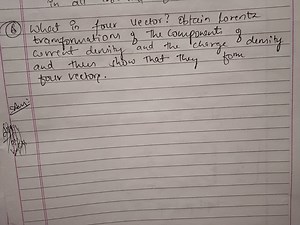 in all
(6) What is four vector? Obtain Lorentz
transformations of the components of
current density and the charge density
and then show that they form
four vector.
Ans: